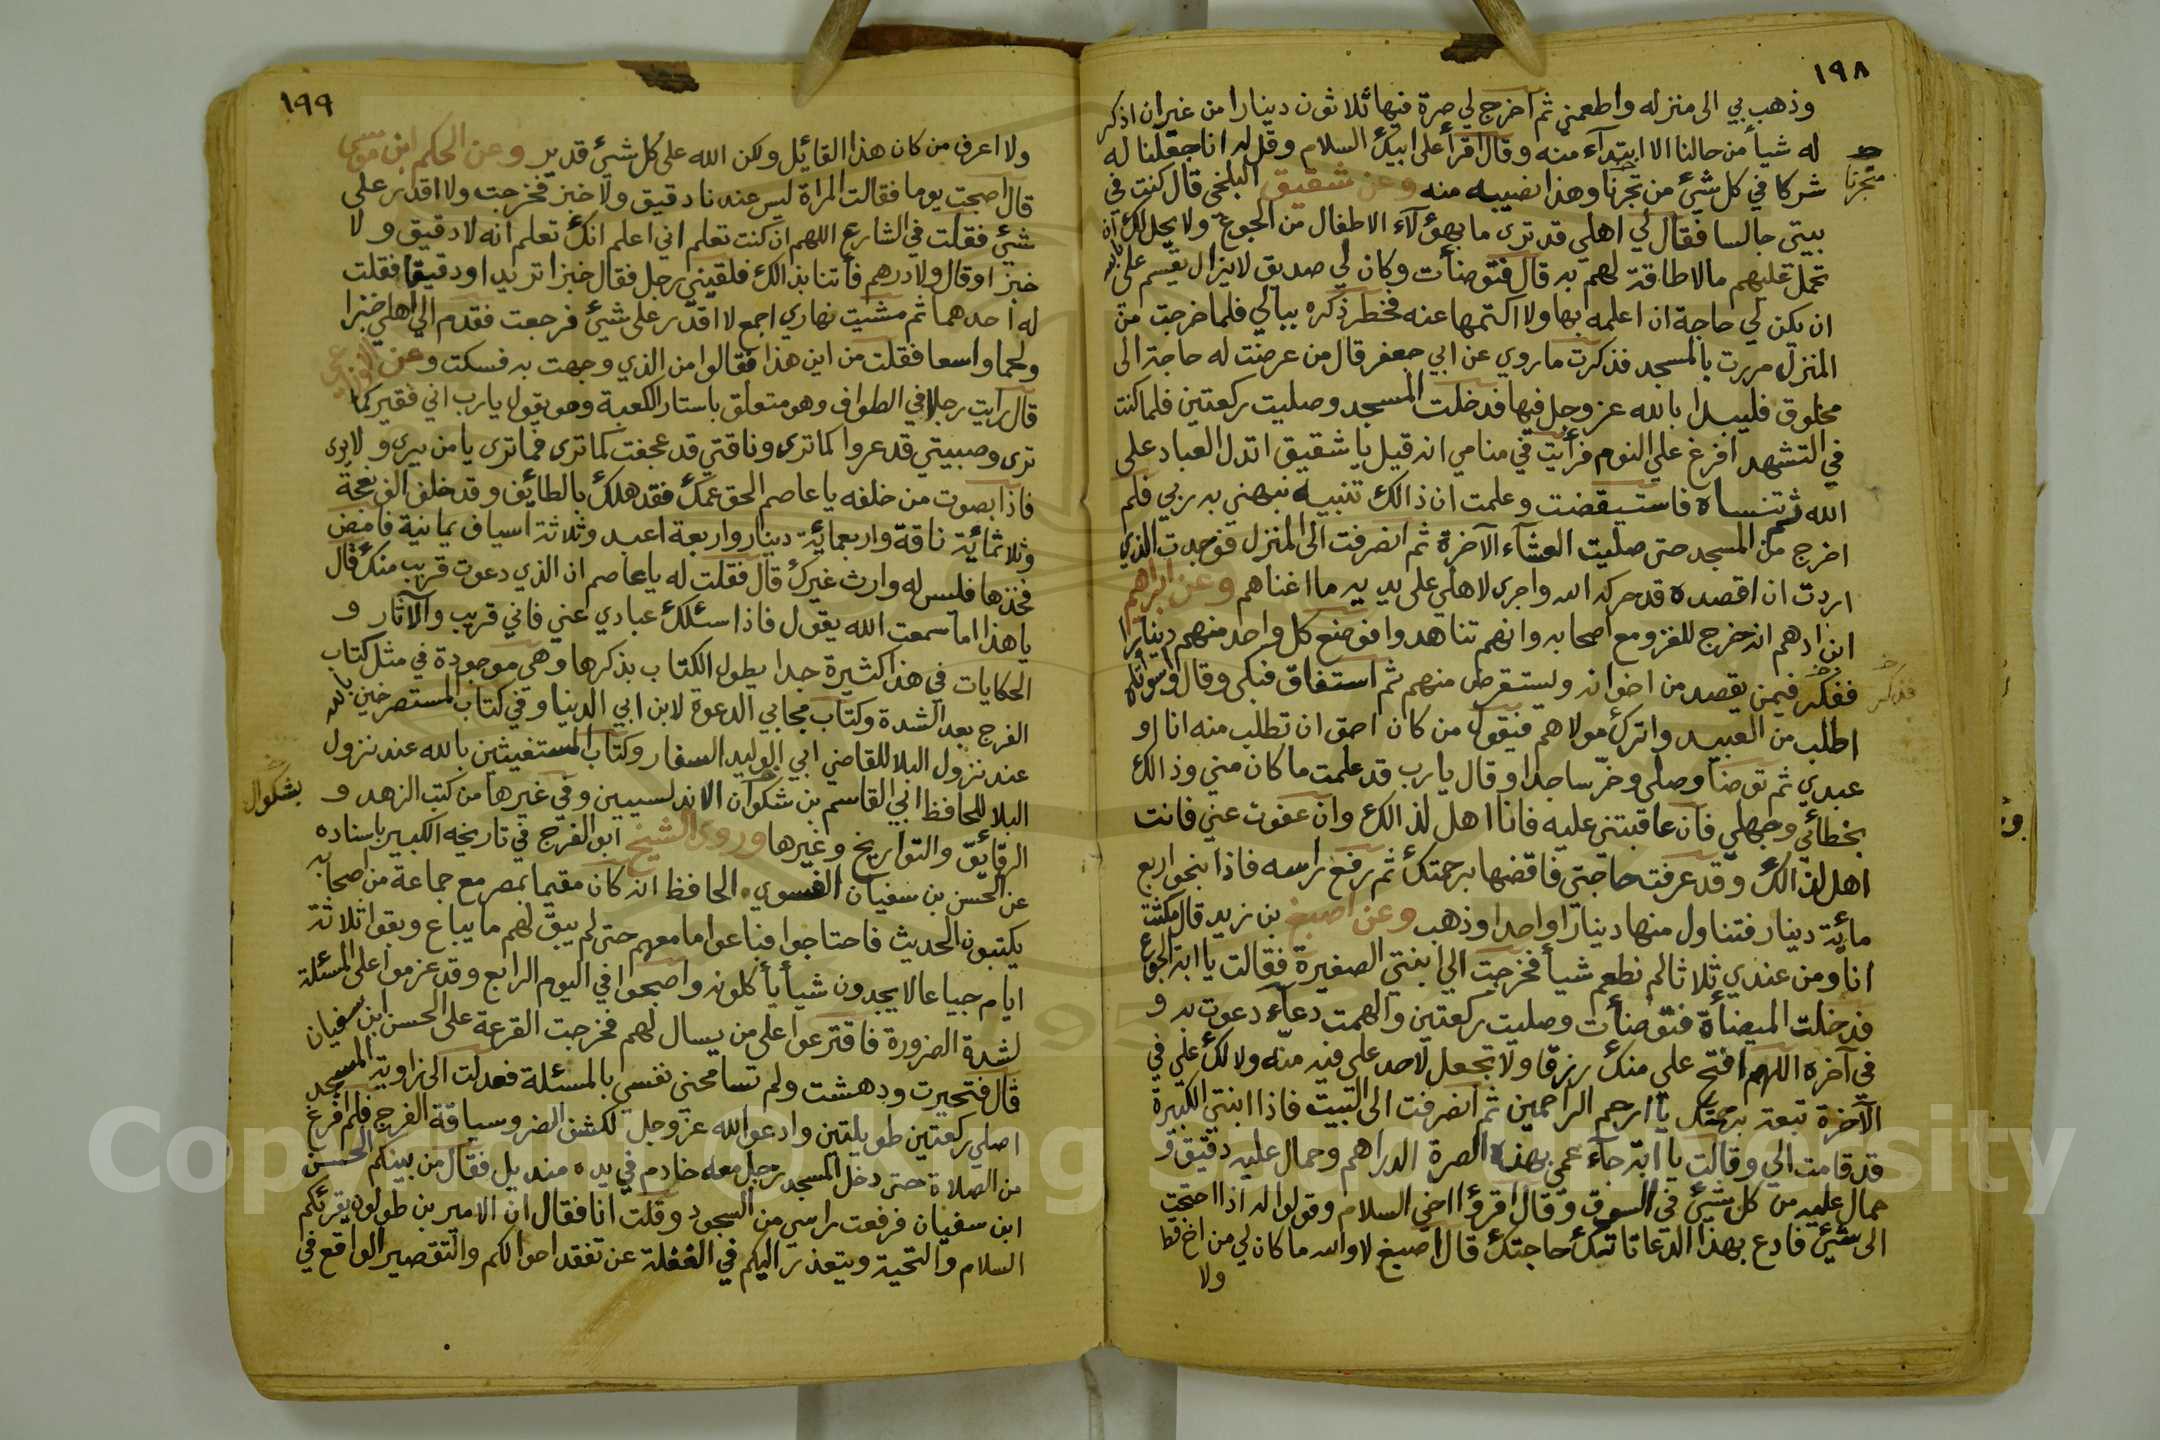 ١٩٨
وذهب بي الى منزله واطعمني ثم اخرج لي صرة فيها ثلاثون دينارا من غير ان اذكر
له شيأ من حالنا الا ابتدآء منه وقال اقرأ على ابيك السلام وقل له انا جعلنا له
شركا في كل شيئ من تجرنا وهذا نصيبه منه وعن شقيق البلخي قال كنت في
متجرنا
بيتى جالسا فقال لي اهلي قد ترى ما بهؤلآء الاطفال من الجوع ولا يحل لك ان
تحمل عليهم مالا طاقة لهم به قال فتوضأت وكان لي صديق لا يزال يقسم علي بالله
ان يكن لي حاجة ان اعلمه بها ولا اكتمها عنه فخطر ذكره ببالي فلما خرجت من
المنزل مررت بالمسجد فذكرت ما روي عن ابي جعفر قال من عرضت له حاجة الى
مخلوق فليبدا بالله عز وجل فيها فدخلت المسجد وصليت ركعتين فلما كنت
في التشهد افرغ علي النوم فرأيت في منامي انه قيل يا شقيق اتدل العباد على
الله ثم تنساه فاستيقضت وعلمت ان ذالك تنبيه نبهني به ربي فلم
اخرج من المسجد حتى صليت العشآء الآخرة ثم انصرفت الى المنزل فوجدت الذي
اردت ان اقصده قد حركه الله واجرى لاهلي على يديه ما اغناهم وعن ابراهيم
ابن ادهم انه خرج للغزو مع اصحابه وانهم تناهدوا فوضع كل واحد منهم دينارا
ففكر فيمن يقصد من اخوانه ويستقرض منهم ثم استفاق فبكى وقال واسوأتاه
فذكر
اطلب من العبيد واترك مولاهم فيقول من كان احق ان تطلب منه انا او
عبدي ثم توضا وصلى وخرّ ساجدا وقال يا رب قد علمت ما كان مني وذالك
بخطائي وجهلي فان عاقبتني عليه فانا اهل لذالك وان عفوت عني فانت
اهل لذالك وقد عرفت حاجتي فاقضها برحمتك ثم رفع راسه فاذا بنحو اربع
مائية دينار فتناول منها دينارا واحدا وذهب وعن اصبغ بن زيد قال مكثت
انا ومن عندي ثلاثا لم نطعم شيأ فخرجت الي ابنتي الصغيرة فقالت يا ابه الجوع
فدخلت الميضأة فتوضأت وصليت ركعتين والهمت دعآء دعوت به و
في آخره اللهم افتح علي منك رزقا ولا تجعل لاحد علي فيه منّه ولا لك علي في
الآخرة تبعة برحمتك يا ارحم الراحمين ثم انصرفت الى البيت فاذا ابنتي الكبيرة
قد قامت الي وقالت يا ابه جآء عمي بهذه الصرة الدراهم وحمال عليه دقيق و
حمال عليه من كل شيئ في السوق وقال اقرؤا اخي السلام وقولوا له اذا احتجت
الى شيئ فادع بهذا الدعا تاتك حاجتك قال اصبغ لا والله ما كان لي من اخ قط
ولا
١٩٩
ولا اعرف من كان هذا القائيل ولكن الله على كل شيئ قدير وعن الحكم ابن موسى
قال اصبحت يوما فقالت المراة ليس عندنا دقيق ولا خبز فخرجت ولا اقدر على
شيئ فقلت في الشارع اللهم ان كنت تعلم اني اعلم انك تعلم انه لا دقيق ولا
خبز او قال ولا درهم فأتنا بذالك فلقيني رجل فقال خبزا تريد او دقيقا فقلت
له احدهما ثم مشيت نهاري اجمع لا اقدر على شيئ فرجعت فقدم الي اهلي خبزا
ولحما واسعا فقلت من اين هذا فقالوا من الذي وجهت به فسكت وعن الاوزاعي
قال رأيت رجلا في الطواف وهو متعلق باستار الكعبة وهو يقول يا رب اني فقير كما
ترى وصبيتي قد عروا كما ترى وناقتي قد عجفت كما ترى فما ترى يا من يرى ولا يرى
فاذا بصوت من خلفه يا عاصم الحق عمك فقد هلك بالطائيف وقد خلف الف نعجة
وثلاثمائية ناقة واربعمائية دينار واربعة اعبد وثلاثة اسياف يمانية فامض
فخذها فليس له وارث غيرك قال فقلت له يا عاصم ان الذي دعوت قريب منك قال
يا هذا اما سمعت الله يقول فاذا سئلك عبادي عني فاني قريب والآثار و
الحكايات في هذا كثيرة جدا يطول الكتاب بذكرها وهي موجودة في مثل كتاب
الفرج بعد الشدة وكتاب مجابي الدعوة لابن ابي الدنيا وفي كتاب المستصرخين بالله
عند نزول البلا للقاضي ابي الوليد السفار وكتاب المستغيثين بالله عند نزول
البلا للحافظ ابي القاسم بن شكوان الاندلسيين وفي غيرها من كتب الزهد و
بشكوال
الرقائيق والتواريخ وغيرها وروى الشيخ ابو الفرج في تاريخه الكبير باسناده
عن الحسن بن سفيان الفسوي الحافظ انه كان مقيما بمصر مع جماعة من صحابه
يكتبون الحديث فاحتاجوا فباعوا ما معهم حتى لم يبق لهم ما يباع وبقوا ثلاثة
ايام جياعا لا يجدون شيأ يأكلونه واصبحوا في اليوم الرابع وقد عزموا على المسئلة
لشدة الضرورة فاقترعوا على من يسال لهم فخرجت القرعة على الحسن ابن سفيان
قال فتحيرت ودهشت ولم تسامحني نفسي بالمسئلة فعدلت الى زاوية المسجد
اصلي ركعتين طويلتين وادعوا الله عز وجل لكشف الضر وسياقة الفرج فلم افرغ
من الصلاة حتى دخل المسجد رجل معه خادم في يده منديل فقال من بينكم الحسن
ابن سفيان فرفعت راسي من السجود وقلت انا فقال ان الامير بن طولون يقرئكم
السلام والتحية ويتعذر اليكم في الغفلة عن تفقد احوالكم والتقصير الواقع في
Copyright © King Saud University